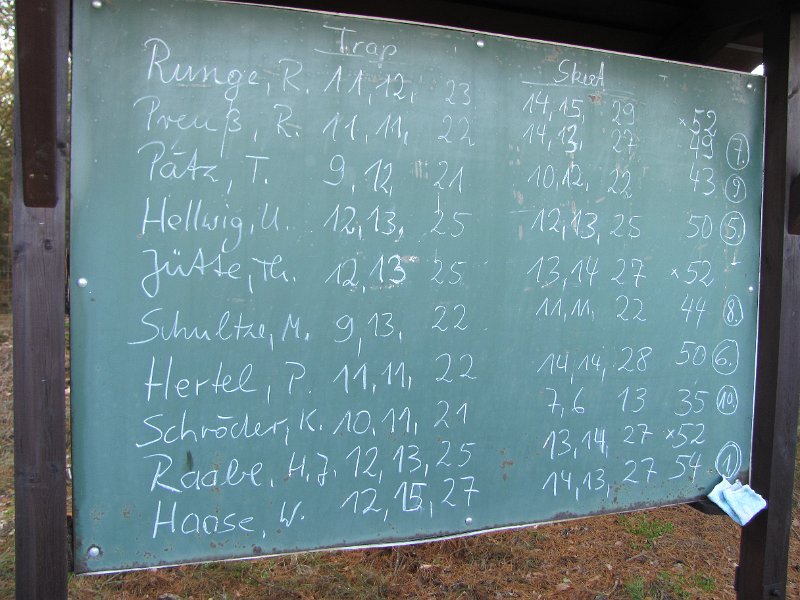 Trap Skeet
Runge, R. 11, 12, 23 14, 15, 29 ×52
Preuß, R. 11, 11, 22 14, 13, 27 49 7.
Pätz, T. 9, 12, 21 10, 12, 22 43 9.
Hellwig, U. 12, 13, 25 12, 13, 25 50 5.
Jütte, Th. 12, 13 25 13, 14 27 ×52
Schultze, M. 9, 13, 22 11, 11, 22 44 8.
Hertel, P. 11, 11, 22 14, 14, 28 50 6.
Schröder, K. 10, 11, 21 7, 6 13 35 10.
Raabe, H.J. 12, 13, 25 13, 14, 27 ×52
Haase, W. 12, 15, 27 14, 13, 27 54 1.